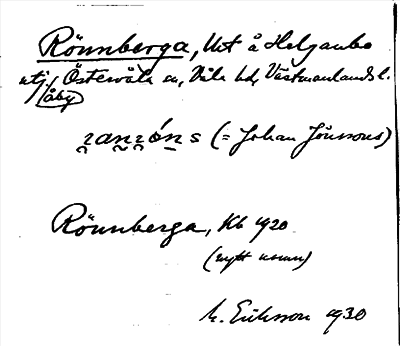 Rönnberga, Utj å Helganbo
utj, Östervåla sn, Våla hd, Västmanlands l.
åby
ɿanɿóns (= Johan Jönssons)
Rönnberga, Kb 1920
(nytt namn)
M. Eriksson 1930